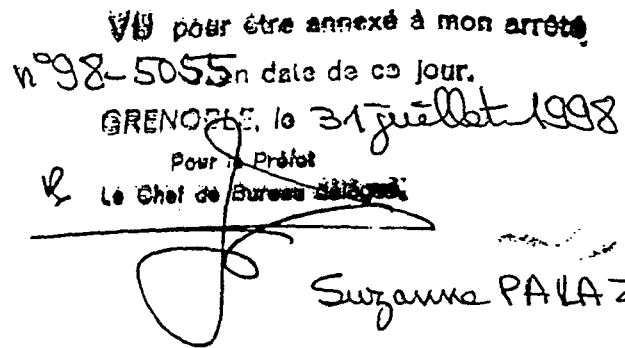 VU pour être annexé à mon arrêté
n°98-5055 en date de ce jour.
GRENOBLE, le 31 juillet 1998
Pour le Préfet
Le Chef de Bureau délégué,
Suzanne